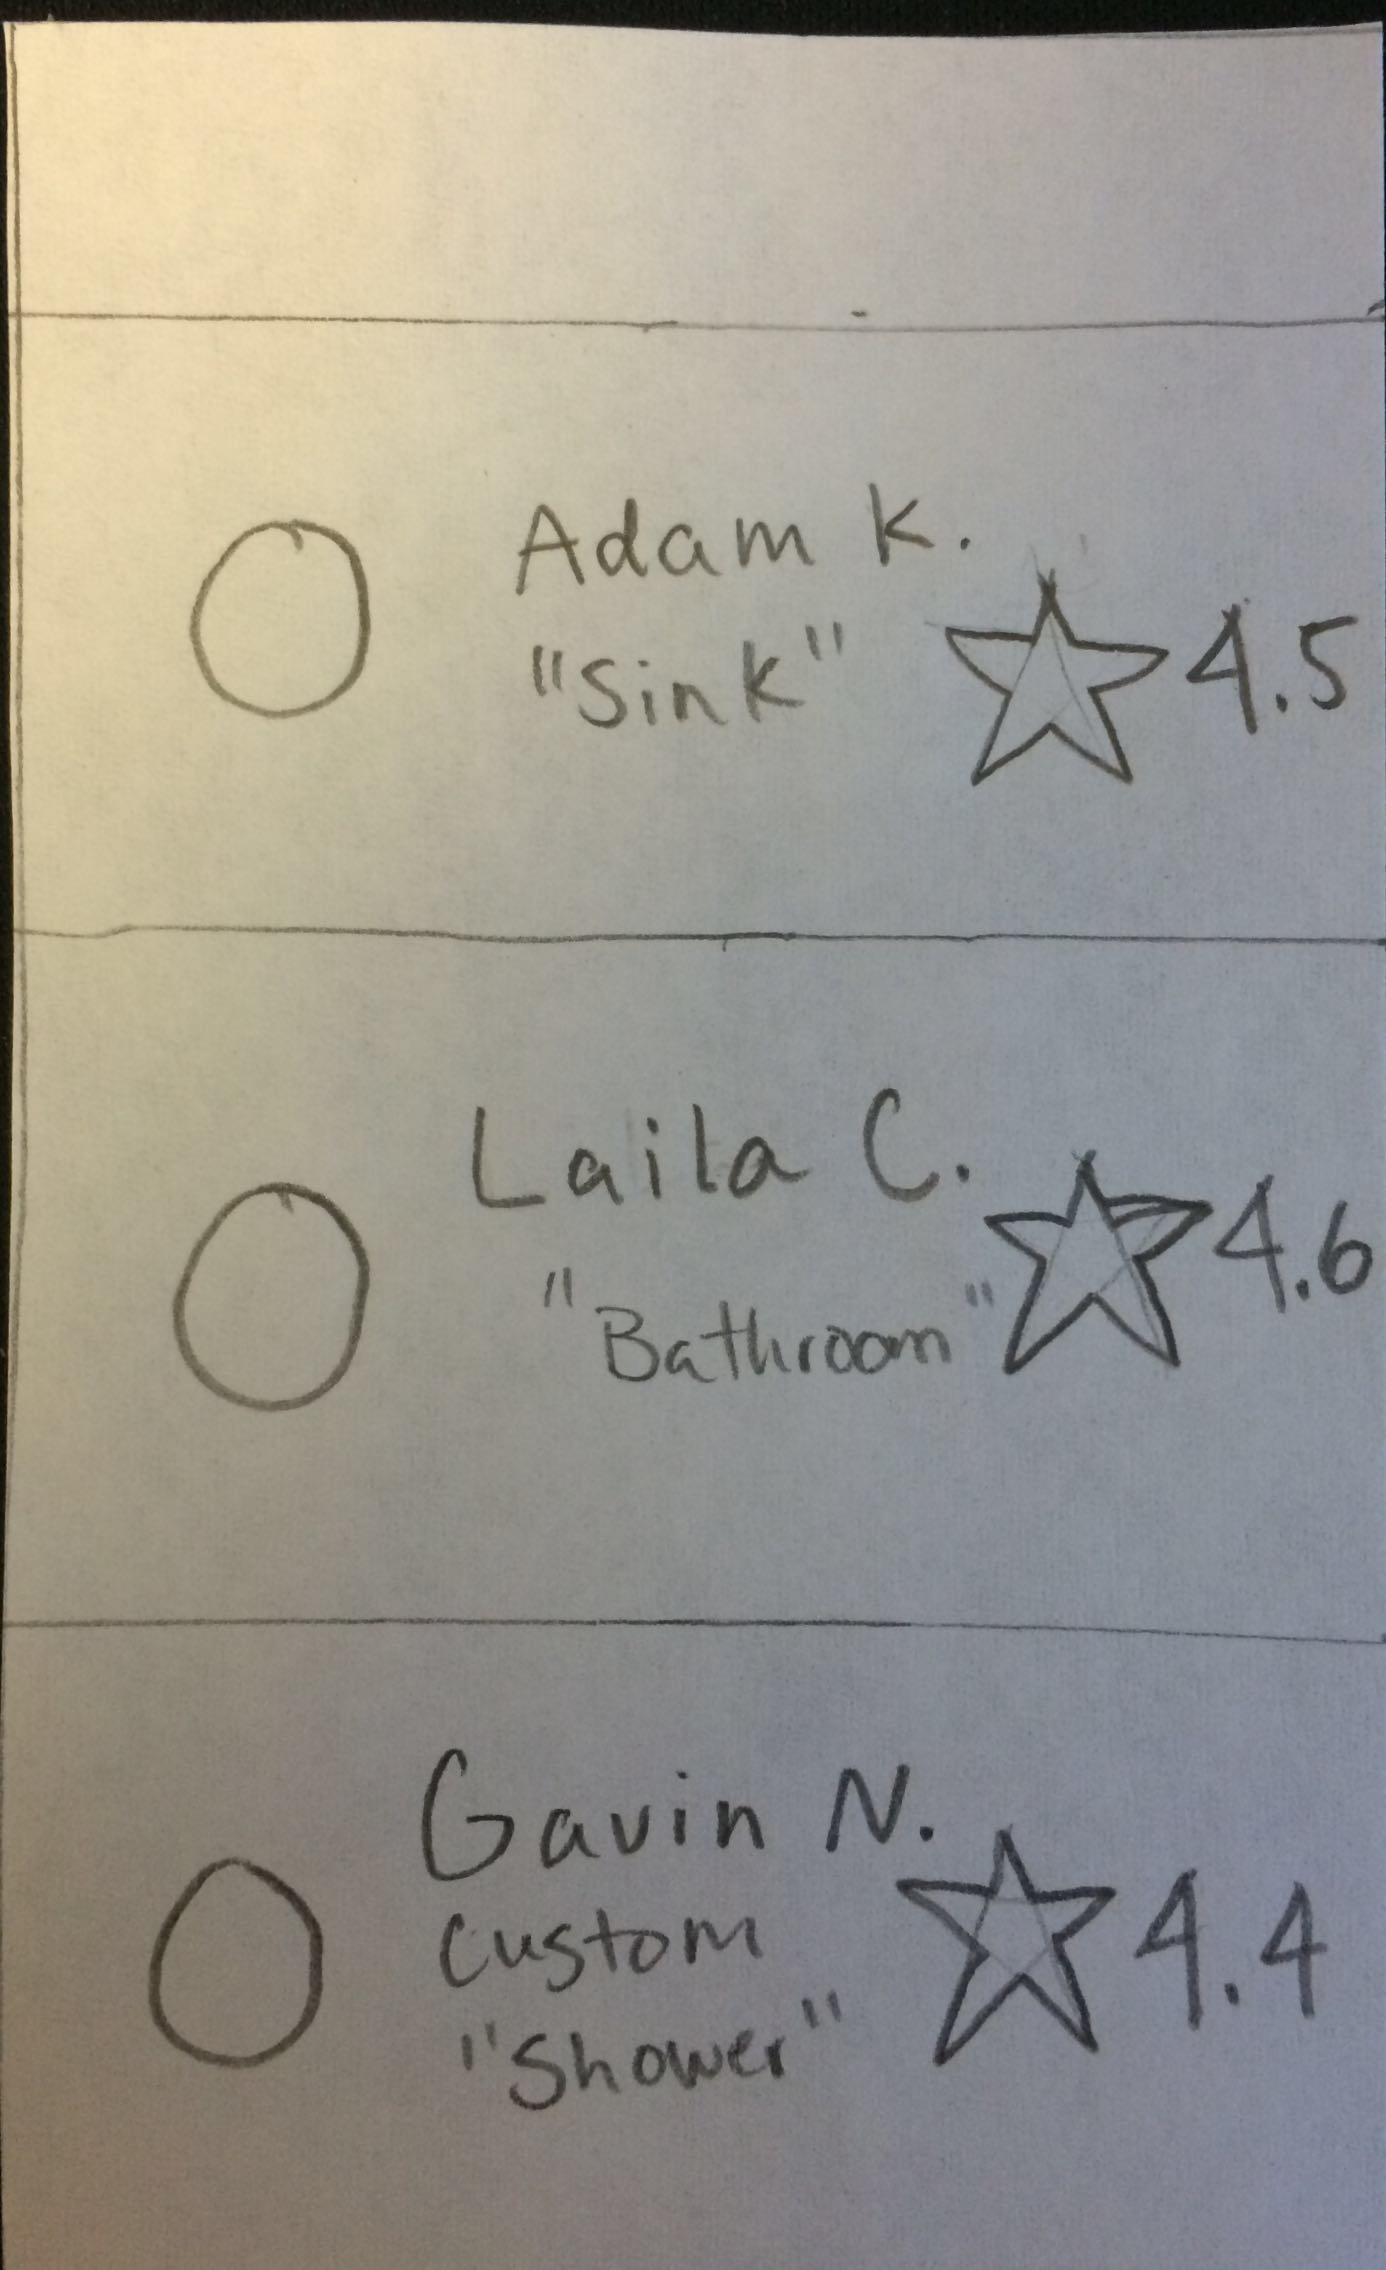 Adam K.
"Sink"
4.5
Laila C.
"Bathroom"
4.6
Gavin N.
Custom
"Shower"
4.4